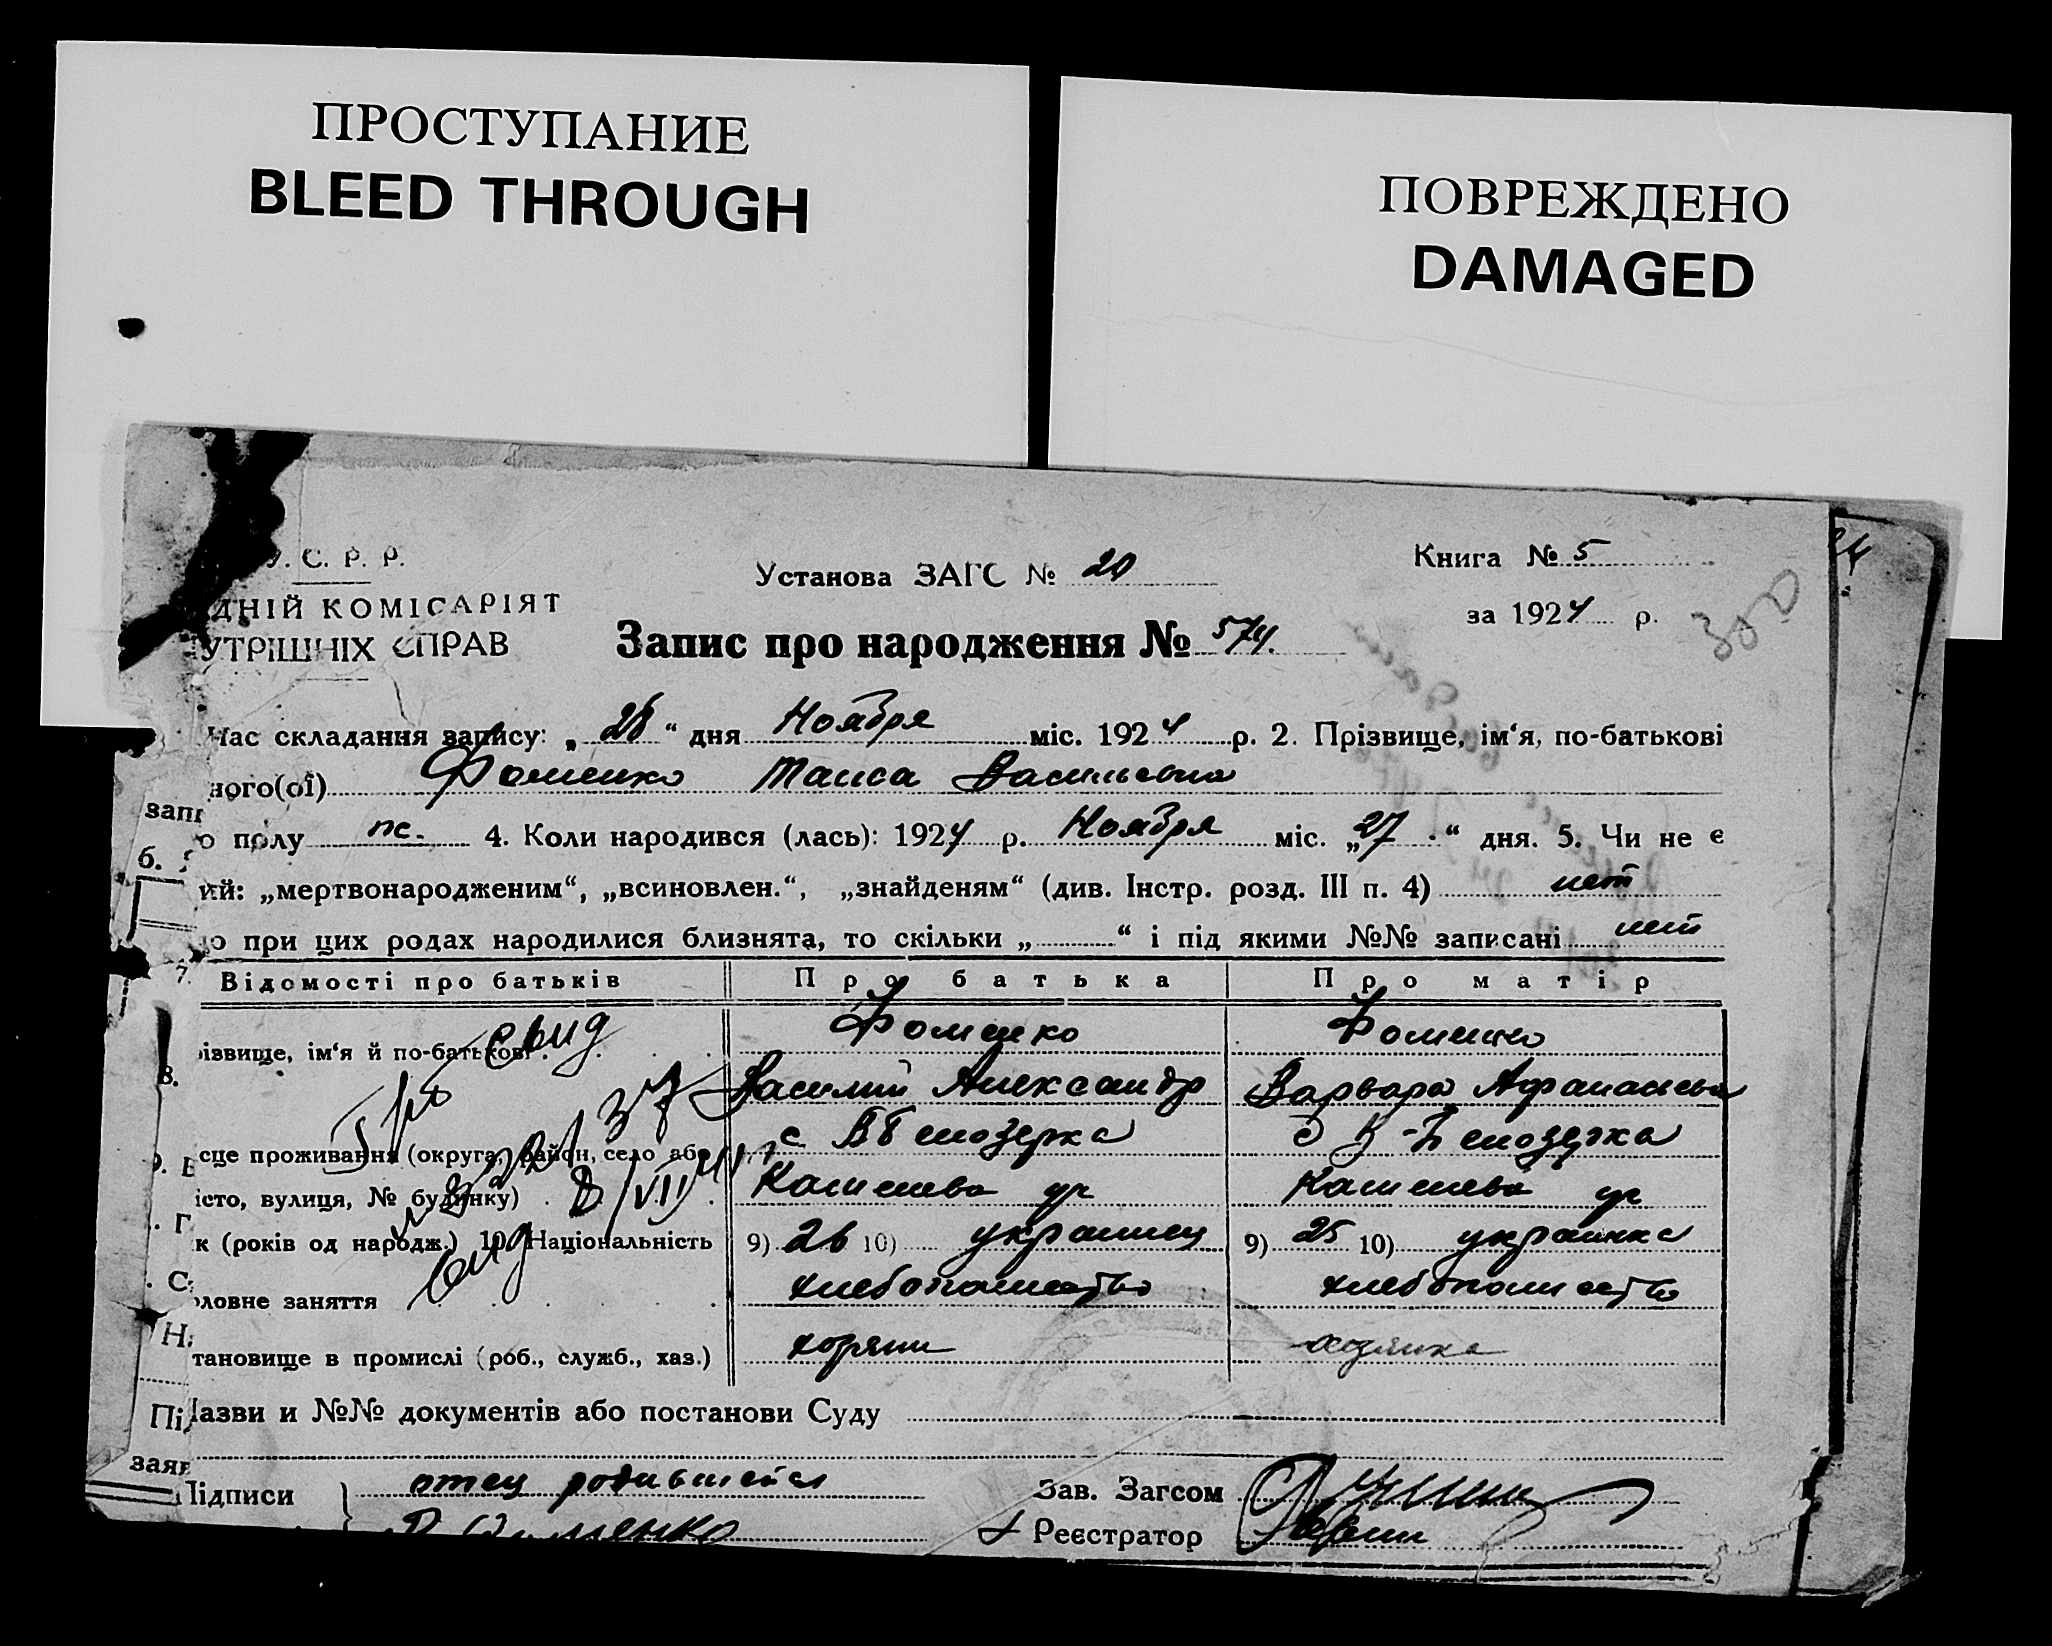 ПРОСТУПАНИЕ
BLEED THROUGH
ПОВРЕЖДЕНО
DAMAGED
У. С. Р. Р.
ДНІЙ КОМІСАРІЯТ
УТРІШНІХ СПРАВ
Установа ЗАГС № 20
Книга № 5
за 1924 р.
Запис про народження № 574.
Час складання запису: „ 28 “ дня Ноября міс. 1924 р. 2. Прізвище, ім‘я, по-батькові
ного(ої) Фоменко Таиса Васильевна
о полу 4. Коли народився (лась): 1924 р. Ноября міс. „27“ дня. 5. Чи не є
ий: „мертвонародженим“, „всиновлен.“, „знайденям“ (див. Інстр. розд. III п. 4) нет
о при цих родах народилися близнята, то скільки „ “ і під якими №№ записані нет
7. Відомості про батьків Про батька Про матір
різвище, ім‘я й по-батькові Фоменко Фоменко
Василий Александр Варвара Афанасьевна
сце проживання (округа, район, село або
істо, вулиця, № будинку) 8/VII
к (років од народж.) 10) Національність 9) 26 10) украинец 9) 25 10) украинка
оловне заняття хлебопашество хлебопашество
тановище в промислі (роб., служб., хаз.) хозяин хозяйка
Назви и №№ документів або постанови Суду
Підписи отец родившейся Зав. Загсом
Фоменко Реєстратор